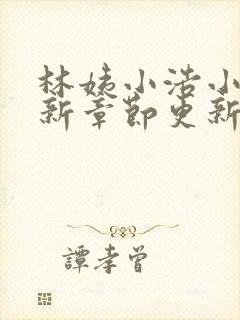 林姨小浩小
新章节更新
譚孝曾